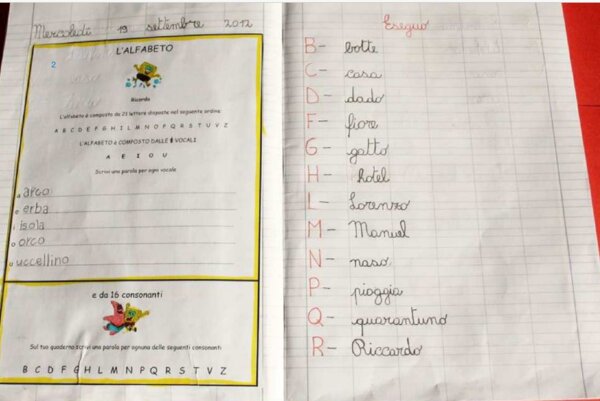 Mercoledì 19 settembre 2012
2
L'ALFABETO
Ricorda
L'alfabeto è composto da 21 lettere disposte nel seguente ordine:
A B C D E F G H I L M N O P Q R S T U V Z
L'ALFABETO è COMPOSTO DALLE VOCALI
A E I O U
Scrivi una parola per ogni vocale
a arco
e erba
i isola
o orco
u uccellino
e da 16 consonanti
Sul tuo quaderno scrivi una parola per ognuna delle seguenti consonanti
B C D F G H L M N P Q R S T V Z
Eseguo
B- botte
C- casa
D- dado
F- fiore
G- gatto
H- hotel
L- Lorenzo
M- Manuel
N- naso
P- pioggia
Q- quarantuno
R- Riccardo